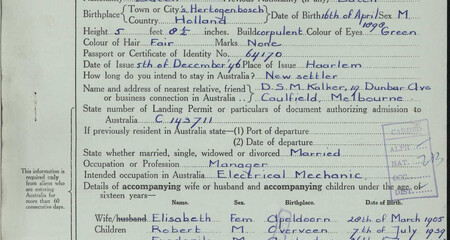 Birthplace { Town or City 's Hertogenbosch } Date of Birth 6th of April Sex M.
Country Holland 1898
Height 5 feet 8½ inches. Build corpulent. Colour of Eyes Green
Colour of Hair Fair Marks None
Passport or Certificate of Identity No. 64170
Date of Issue 5th of December '46 Place of Issue Haarlem
How long do you intend to stay in Australia? New settler
Name and address of nearest relative, friend } D.S.M. Kalker, 19 Dunbar Ave
or business connection in Australia .. } Caulfield, Melbourne.
State number of Landing Permit or particulars of document authorizing admission to
Australia C 143711
If previously resident in Australia state—(1) Port of departure
(2) Date of departure
State whether married, single, widowed or divorced Married
Occupation or Profession Manager
Intended occupation in Australia Electrical Mechanic.
Details of accompanying wife or husband and accompanying children under the age of
sixteen years—
Name. Sex. Place of Birth. Date of Birth.
Wife/husband Elisabeth Fem. Apeldoorn 28th of March 1905
Children Robert M. Overveen 7th of July 1939
This information is
required only
from aliens who
are entering
Australia for
more than 60
consecutive days.
CARDED
ALPH.
NAT.